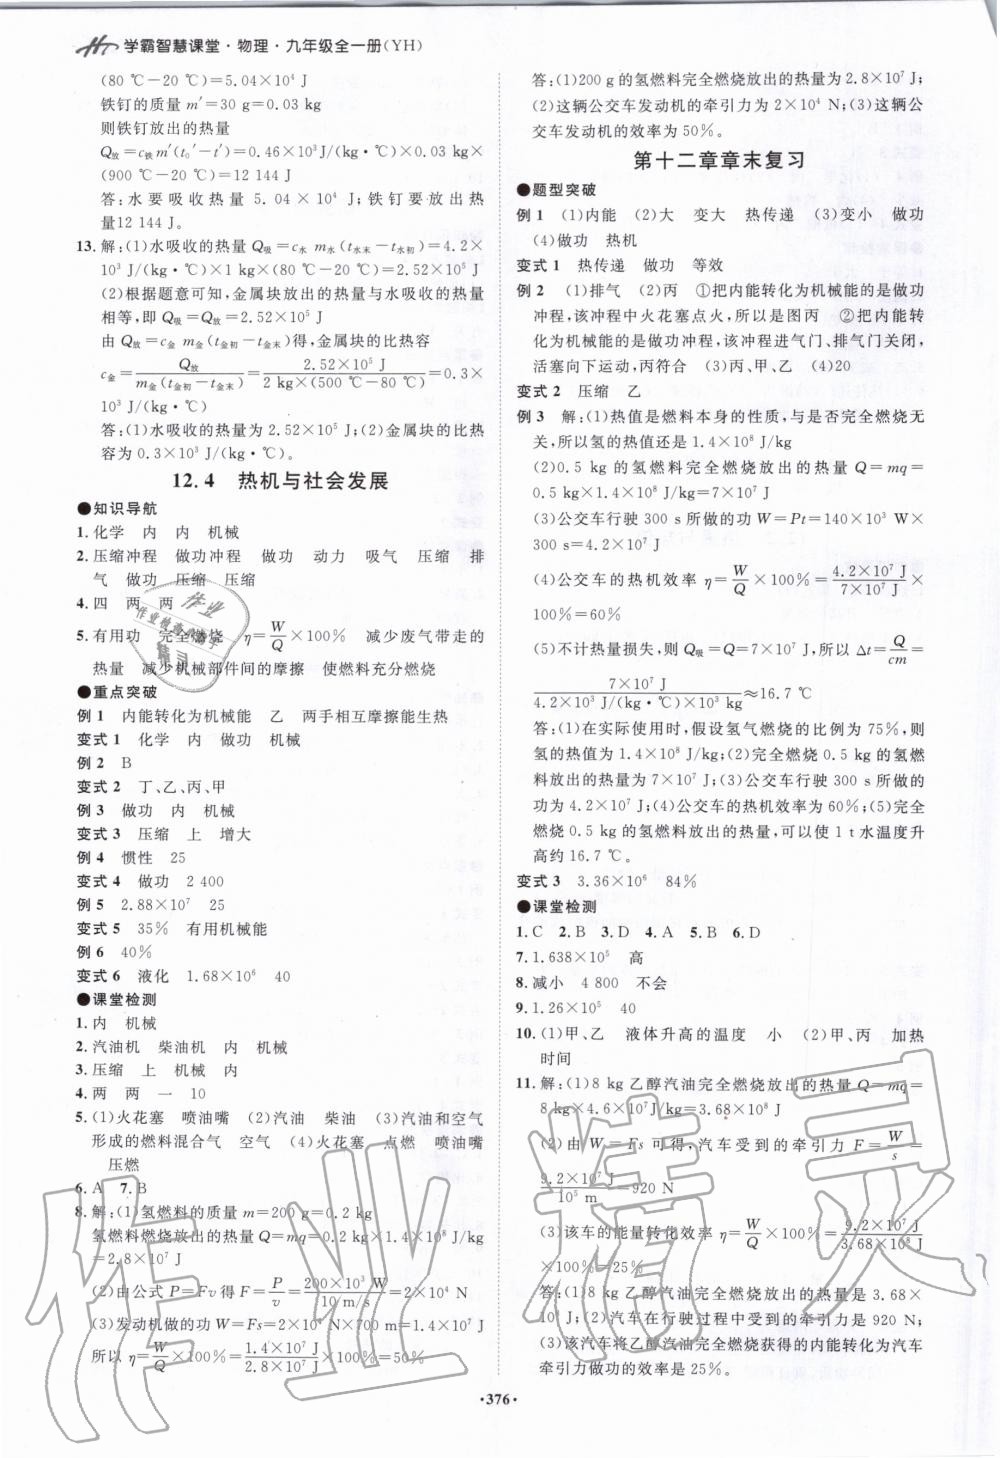 学霸智慧课堂·物理·九年级全一册(YH)
(80 ℃－20 ℃)＝5.04×10⁴ J
铁钉的质量 m′＝30 g＝0.03 kg
则铁钉放出的热量
Q放＝c铁 m′(t₀′－t′)＝0.46×10³J/(kg·℃)×0.03 kg×
(900 ℃－20 ℃)＝12 144 J
答:水要吸收热量 5.04×10⁴ J,铁钉要放出热
量12 144 J。
13.解:(1)水吸收的热量 Q吸＝c水 m水(t水末－t水初)＝4.2×
10³ J/(kg·℃)×1 kg×(80 ℃－20 ℃)＝2.52×10⁵ J
(2)根据题意可知,金属块放出的热量与水吸收的热量
相等,即 Q吸＝Q放＝2.52×10⁵ J
由 Q放＝c金 m金(t金初－t金末)得,金属块的比热容
c金＝Q放/m金(t金初－t金末)＝2.52×10⁵ J/2 kg×(500 ℃－80 ℃)＝0.3×
10³ J/(kg·℃)
答:(1)水吸收的热量为 2.52×10⁵ J;(2)金属块的比热
容为 0.3×10³ J/(kg·℃)。
12.4 热机与社会发展
●知识导航
1.化学 内 内 机械
2.压缩冲程 做功冲程 做功 动力 吸气 压缩 排
气 做功 压缩 压缩
4.四 两 两
5.有用功 完全燃烧 η＝W/Q×100% 减少废气带走的
热量 减少机械部件间的摩擦 使燃料充分燃烧
●重点突破
例 1 内能转化为机械能 乙 两手相互摩擦能生热
变式 1 化学 内 做功 机械
例 2 B
变式 2 丁、乙、丙、甲
例 3 做功 内 机械
变式 3 压缩 上 增大
例 4 惯性 25
变式 4 做功 2 400
例 5 2.88×10⁷ 25
变式 5 35% 有用机械能
例 6 40%
变式 6 液化 1.68×10⁶ 40
●课堂检测
1.内 机械
2.汽油机 柴油机 内 机械
3.压缩 上 机械 内
4.两 两 一 10
5.(1)火花塞 喷油嘴 (2)汽油 柴油 (3)汽油和空气
形成的燃料混合气 空气 (4)火花塞 点燃 喷油嘴
压燃
6.A 7.B
8.解:(1)氢燃料的质量 m＝200 g＝0.2 kg
氢燃料燃烧放出的热量 Q＝mq＝0.2 kg×1.4×10⁸ J/kg
＝2.8×10⁷ J
(2)由公式 P＝Fv 得 F＝P/v＝200×10³ W/10 m/s＝2×10⁴ N
(3)发动机做的功 W＝Fs＝2×10⁴ N×700 m＝1.4×10⁷ J
所以 η＝W/Q×100%＝1.4×10⁷ J/2.8×10⁷ J×100%＝50%
答:(1)200 g的氢燃料完全燃烧放出的热量为 2.8×10⁷ J;
(2)这辆公交车发动机的牵引力为 2×10⁴ N;(3)这辆公
交车发动机的效率为 50%。
第十二章章末复习
●题型突破
例 1 (1)内能 (2)大 变大 热传递 (3)变小 做功
(4)做功 热机
变式 1 热传递 做功 等效
例 2 (1)排气 (2)丙 ①把内能转化为机械能的是做功
冲程,该冲程中火花塞点火,所以是图丙 ②把内能转
化为机械能的是做功冲程,该冲程进气门、排气门关闭,
活塞向下运动,丙符合 (3)丙、甲、乙 (4)20
变式 2 压缩 乙
例 3 解:(1)热值是燃料本身的性质,与是否完全燃烧无
关,所以氢的热值还是 1.4×10⁸ J/kg
(2)0.5 kg 的氢燃料完全燃烧放出的热量 Q＝mq＝
0.5 kg×1.4×10⁸ J/kg＝7×10⁷ J
(3)公交车行驶 300 s 所做的功 W＝Pt＝140×10³ W×
300 s＝4.2×10⁷ J
(4)公交车的热机效率 η＝W/Q×100%＝4.2×10⁷ J/7×10⁷ J×
100%＝60%
(5)不计热量损失,则 Q吸＝Q＝7×10⁷ J,所以 Δt＝Q/cm＝
7×10⁷ J/4.2×10³ J/(kg·℃)×10³ kg≈16.7 ℃
答:(1)在实际使用时,假设氢气燃烧的比例为 75%,则
氢的热值为 1.4×10⁸ J/kg;(2)完全燃烧 0.5 kg 的氢燃
料放出的热量为 7×10⁷ J;(3)公交车行驶 300 s 所做的
功为 4.2×10⁷ J;(4)公交车的热机效率为 60%;(5)完全
燃烧 0.5 kg 的氢燃料放出的热量,可以使 1 t 水温度升
高约 16.7 ℃。
变式 3 3.36×10⁶ 84%
●课堂检测
1.C 2.B 3.D 4.A 5.B 6.D
7.1.638×10⁵ 高
8.减小 4 800 不会
9.1.26×10⁵ 40
10.(1)甲、乙 液体升高的温度 小 (2)甲、丙 加热
时间
11.解:(1)8 kg 乙醇汽油完全燃烧放出的热量 Q＝mq＝
8 kg×4.6×10⁷J/kg＝3.68×10⁸ J
(2)由 W＝Fs 可得,汽车受到的牵引力 F＝W/s＝
9.2×10⁷ J/10⁵ m＝920 N
(3)该车的能量转化效率 η＝W/Q×100%＝9.2×10⁷ J/3.68×10⁸ J
×100%＝25%
答:(1)8 kg 乙醇汽油完全燃烧放出的热量是 3.68×
10⁸ J;(2)汽车在行驶过程中受到的牵引力是 920 N;
(3)该汽车将乙醇汽油完全燃烧获得的内能转化为汽车
牵引力做功的效率是 25%。
·376·
作业精灵